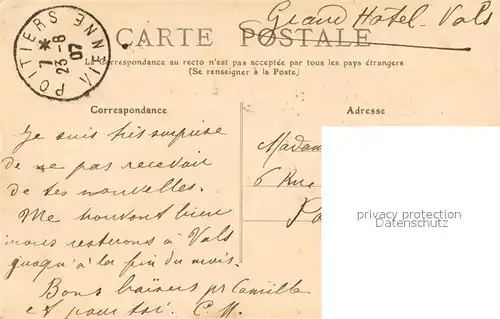 Grand Hôtel - Vals
POITIERS
7 *
23-8
07
VIENNE
CARTE POSTALE
La Correspondance au recto n'est pas acceptée par tous les pays étrangers
(Se renseigner à la Poste)
Correspondance
Adresse
Je suis très surprise
de ne pas recevoir
de tes nouvelles.
Me trouvant bien
nous resterons à Vals
jusqu'à la fin du mois.
Bons baisers pr Camille
et pour toi. C. M.
Madam
6 Rue
Po
privacy protection
Datenschutz